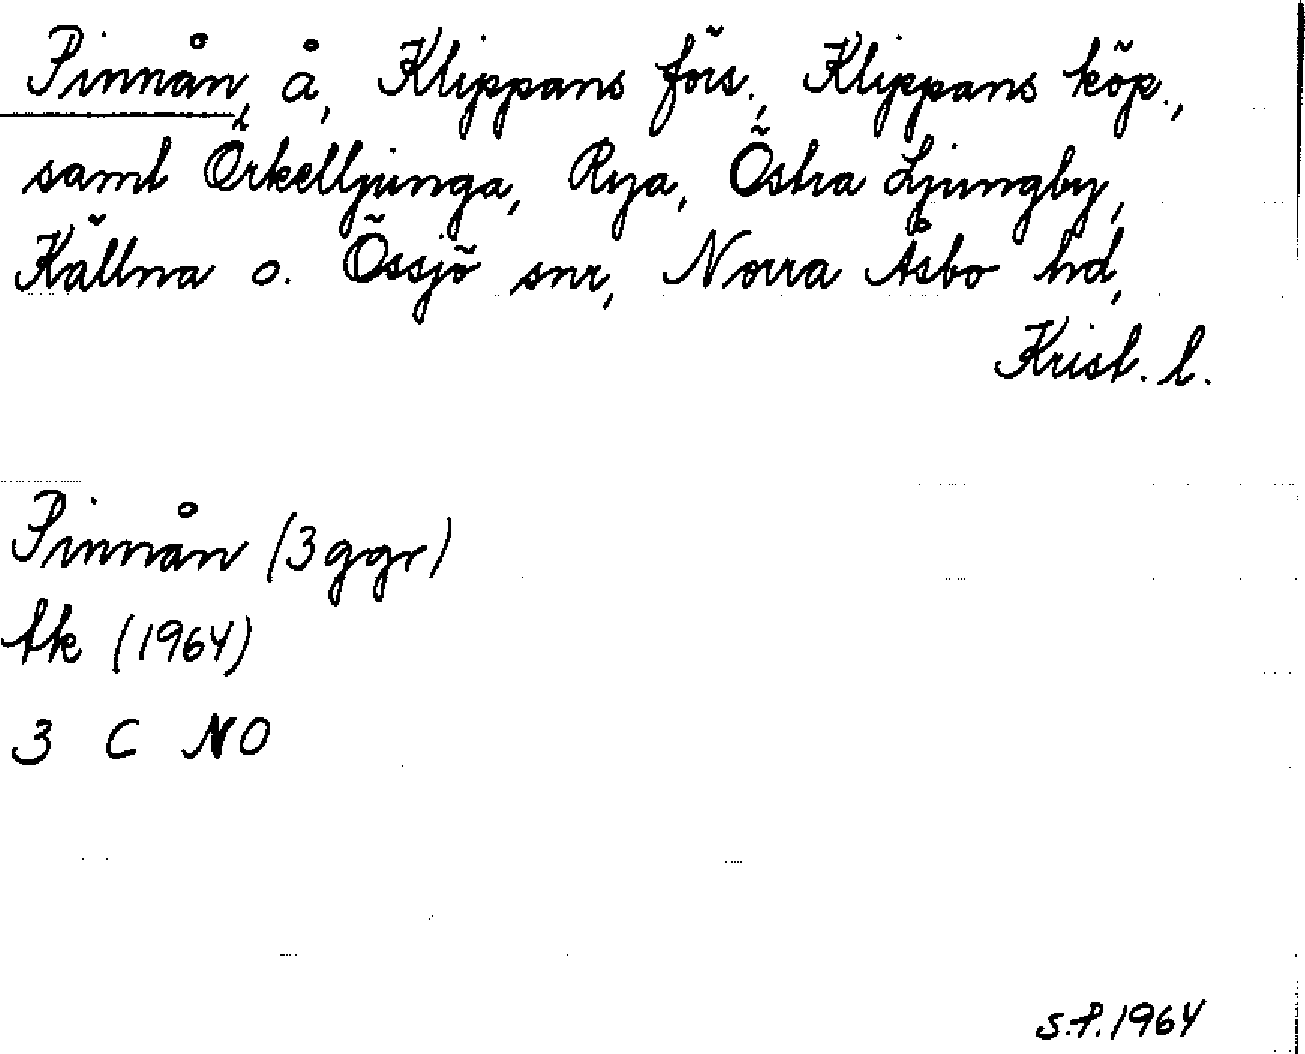 Pinnån, å, Klippans förs., Klippans köp.,
samt Örkelljunga, Rya, Östra Ljungby,
Källna o. Össjö snr, Norra Åsbo hd,
Krist. l.
Pinnån (3 ggr)
tk (1964)
3 C NO
S.P. 1964